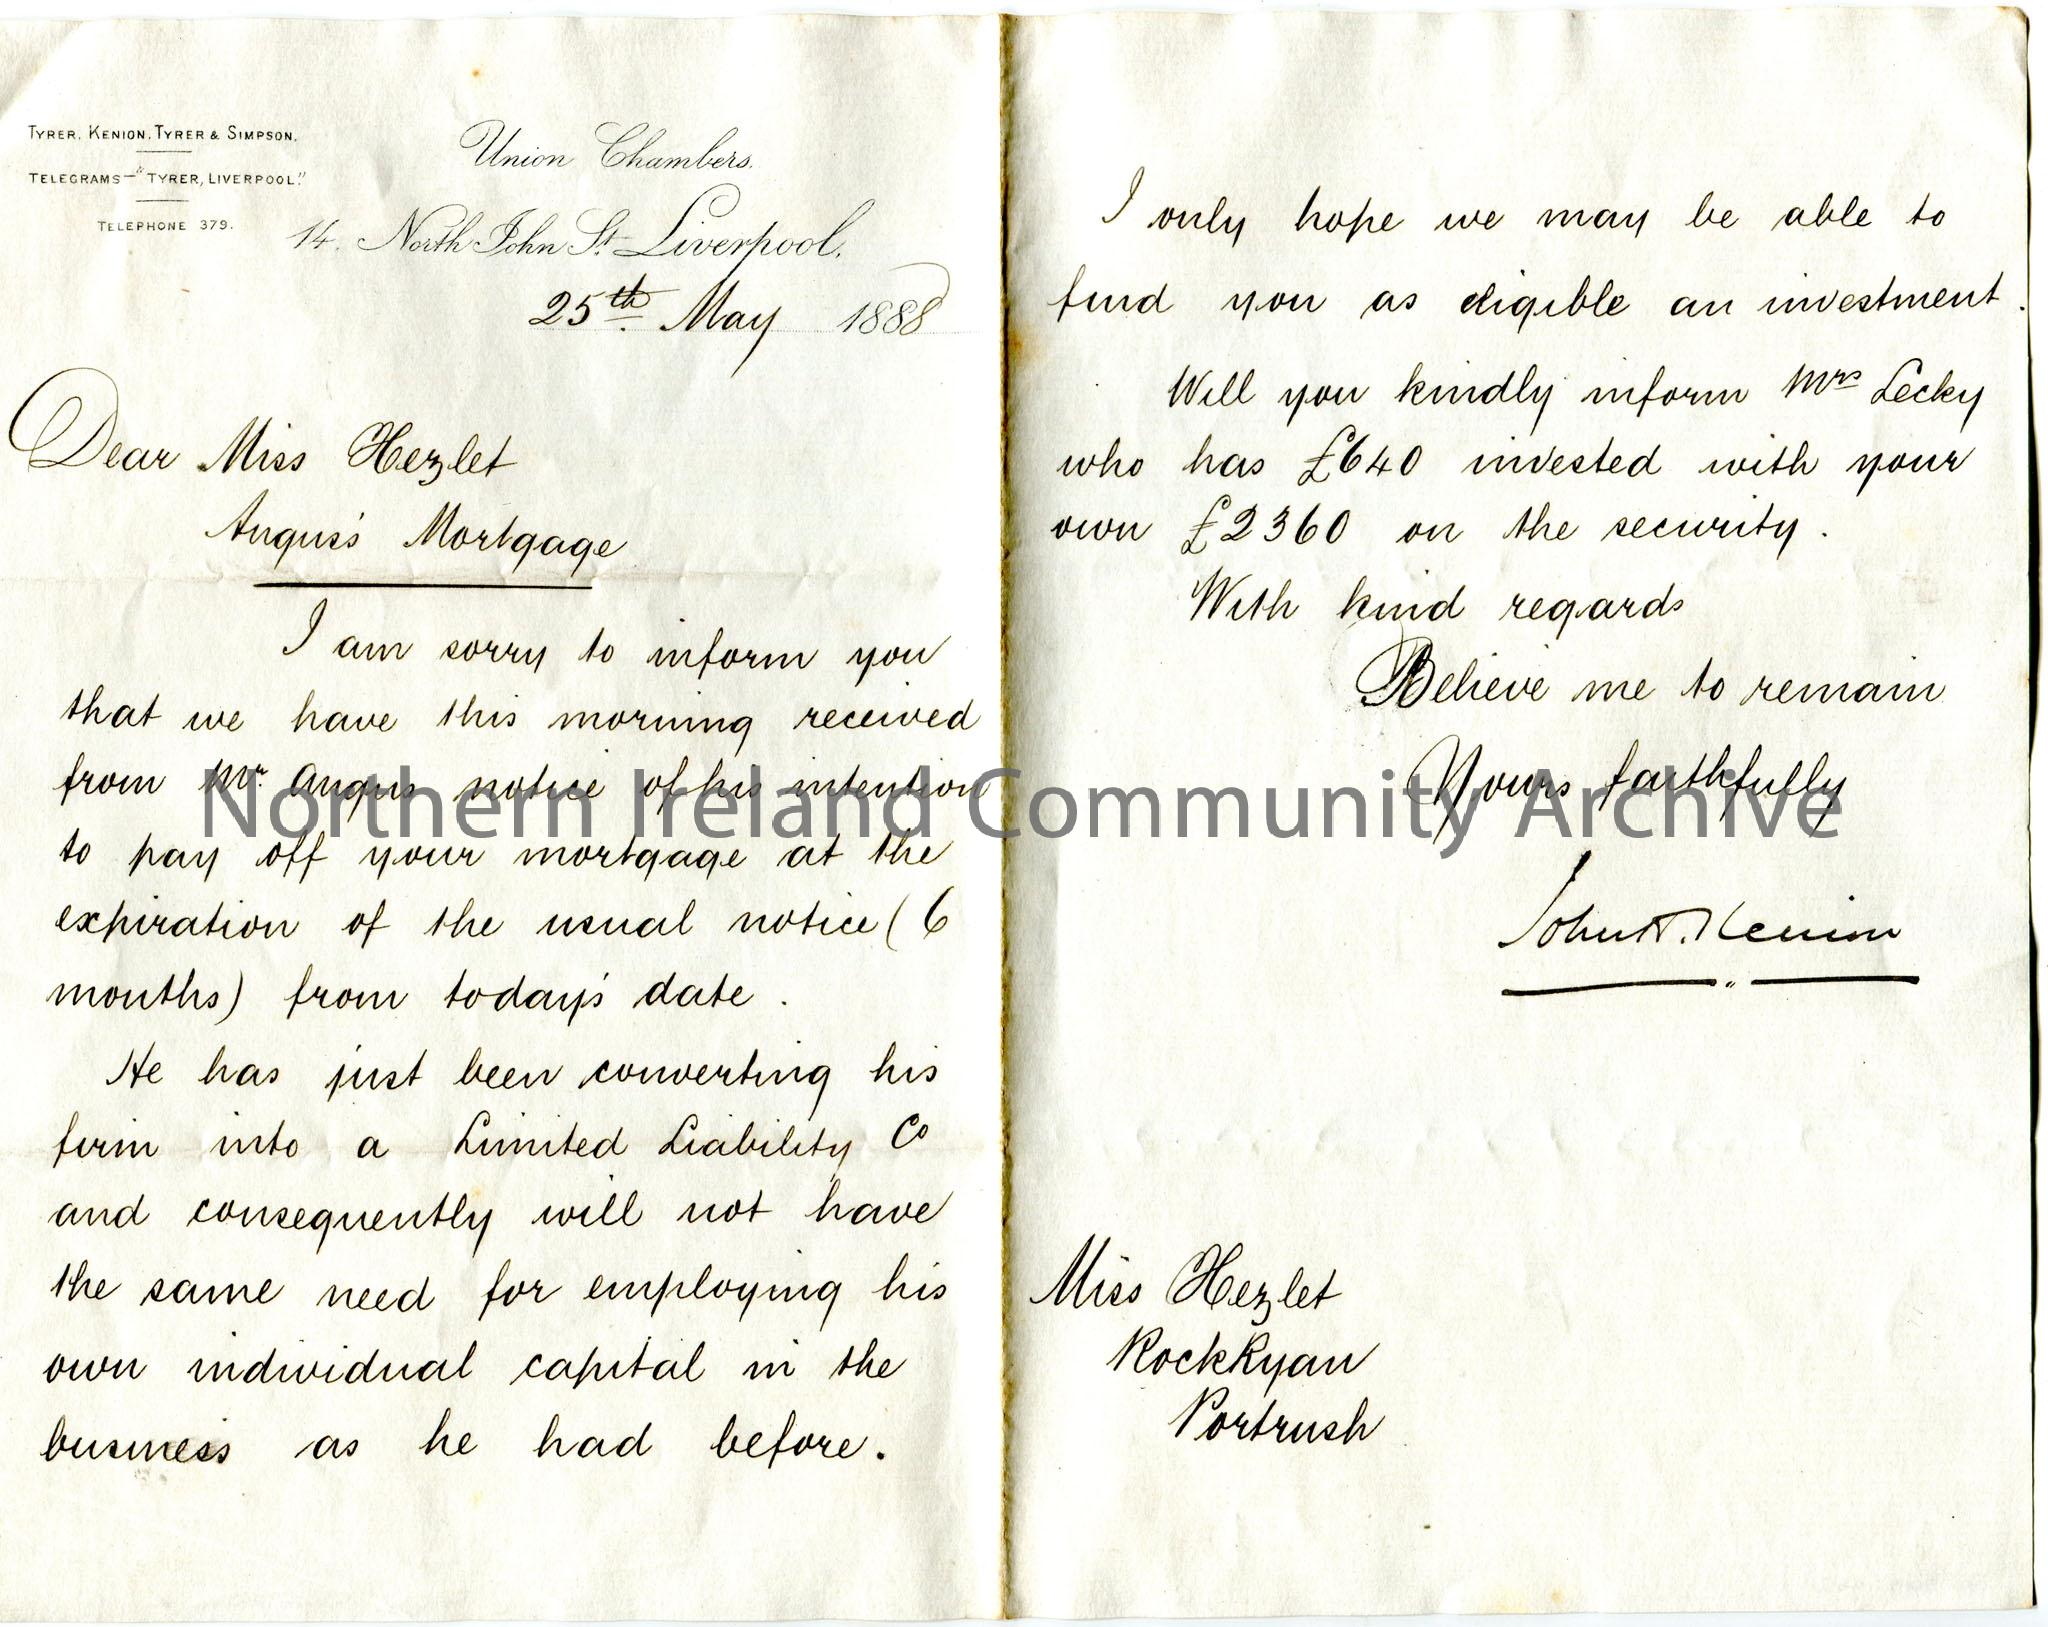 TYRER, KENION, TYRER & SIMPSON.
TELEGRAMS—"TYRER, LIVERPOOL."
TELEPHONE 379.
Union Chambers.
14. North John St. Liverpool.
25th. May 1888
Dear Miss Hezlet
Angus's Mortgage
I am sorry to inform you
that we have this morning received
from Mr. Angus notice of his intention
to pay off your mortgage at the
expiration of the usual notice (6
months) from today's date.
He has just been converting his
firm into a Limited Liability Co
and consequently will not have
the same need for employing his
own individual capital in the
business as he had before.
I only hope we may be able to
find you as eligible an investment.
Will you kindly inform Mrs Lecky
who has £640 invested with your
own £2360 on the security.
With kind regards
Believe me to remain
Yours faithfully
John Kenion
Miss Hezlet
RockRyan
Portrush
Northern Ireland Community Archive